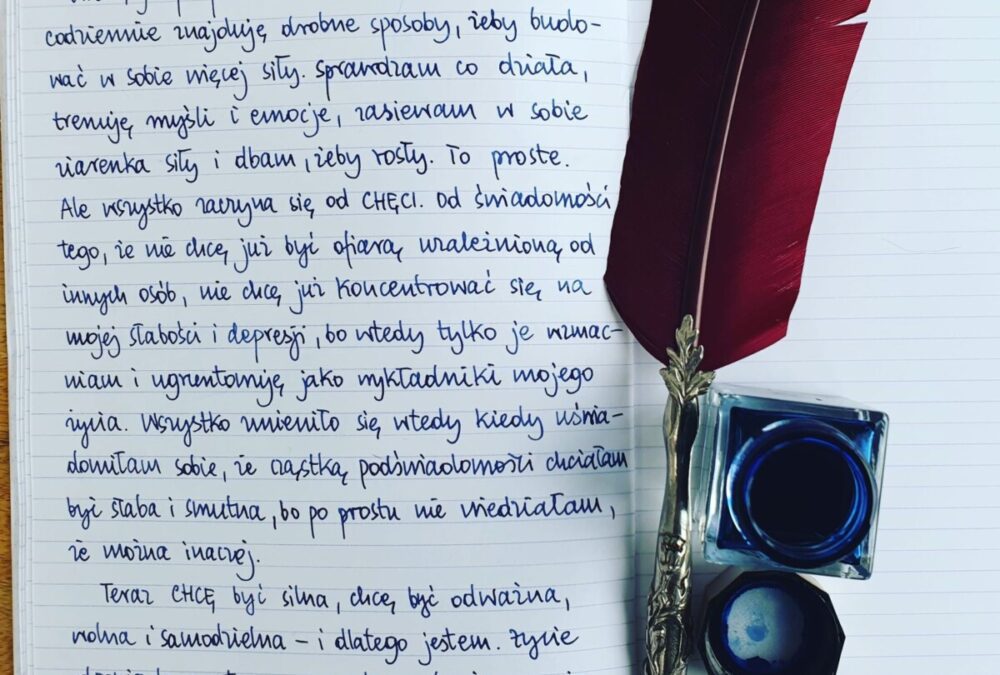 codziennie znajduję drobne sposoby, żeby budo-
wać w sobie więcej siły. Sprawdzam co działa,
trenuję myśli i emocje, zasiewam w sobie
ziarenka siły i dbam, żeby rosły. To proste.
Ale wszystko zaczyna się od CHĘCI. Od świadomości
tego, że nie chcę już być ofiarą uzależnioną od
innych osób, nie chcę już koncentrować się na
mojej słabości i depresji, bo wtedy tylko je wzmac-
niam i ugruntowuję jako wykładniki mojego
życia. Wszystko zmieniło się wtedy kiedy uświa-
domiłam sobie, że cząstką podświadomości chciałam
być słaba i smutna, bo po prostu nie wiedziałam,
że można inaczej.
Teraz CHCĘ być silna, chcę być odważna,
wolna i samodzielna – i dlatego jestem. Życie